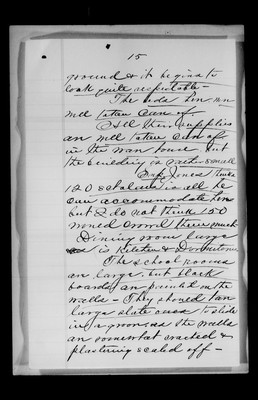 15
ground & it begins to
look quite respectable -
The beds here are
well taken care of.
All their supplies
are well taken care of
in the ware house but
the building is rather small
Supt. Jones thinks
120 scholars is all he
can accommodate here
but I do not think 150
would crowd them much
Dining room large
so is Kitchen & Dormitories
The school rooms
are large but black
boards are painted on the
walls - They should have
large slate ones to slide
in a groove as the walls
are somewhat cracked &
plastering scaled off -